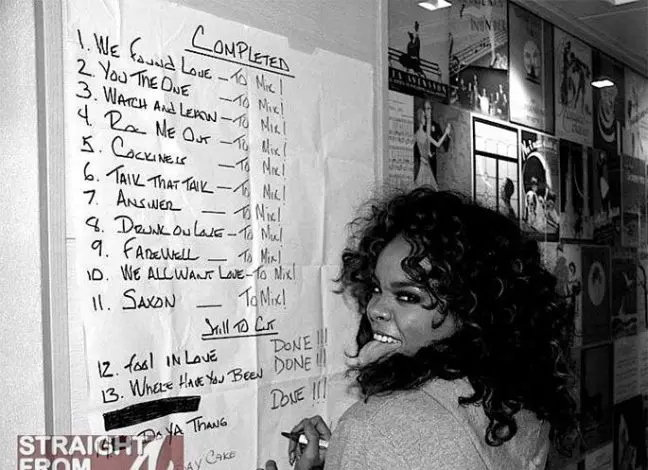 COMPLETED
1. WE FOUND LOVE – TO MIX!
2. YOU THE ONE – TO MIX!
3. WATCH AND LEARN – TO MIX!
4. ROC ME OUT – TO MIX!
5. COCKINESS – TO MIX!
6. TALK THAT TALK – TO MIX!
7. ANSWER — TO MIX!
8. DRUNK ON LOVE – TO MIX!
9. FAREWELL — TO MIX!
10. WE ALL WANT LOVE – TO MIX!
11. SAXON — TO MIX!
STILL TO CUT
12. FOOL IN LOVE DONE!!!
13. WHERE HAVE YOU BEEN DONE!!!
DONE!!!
DO YA THANG
DAY CAKE
STRAIGHT
FROM